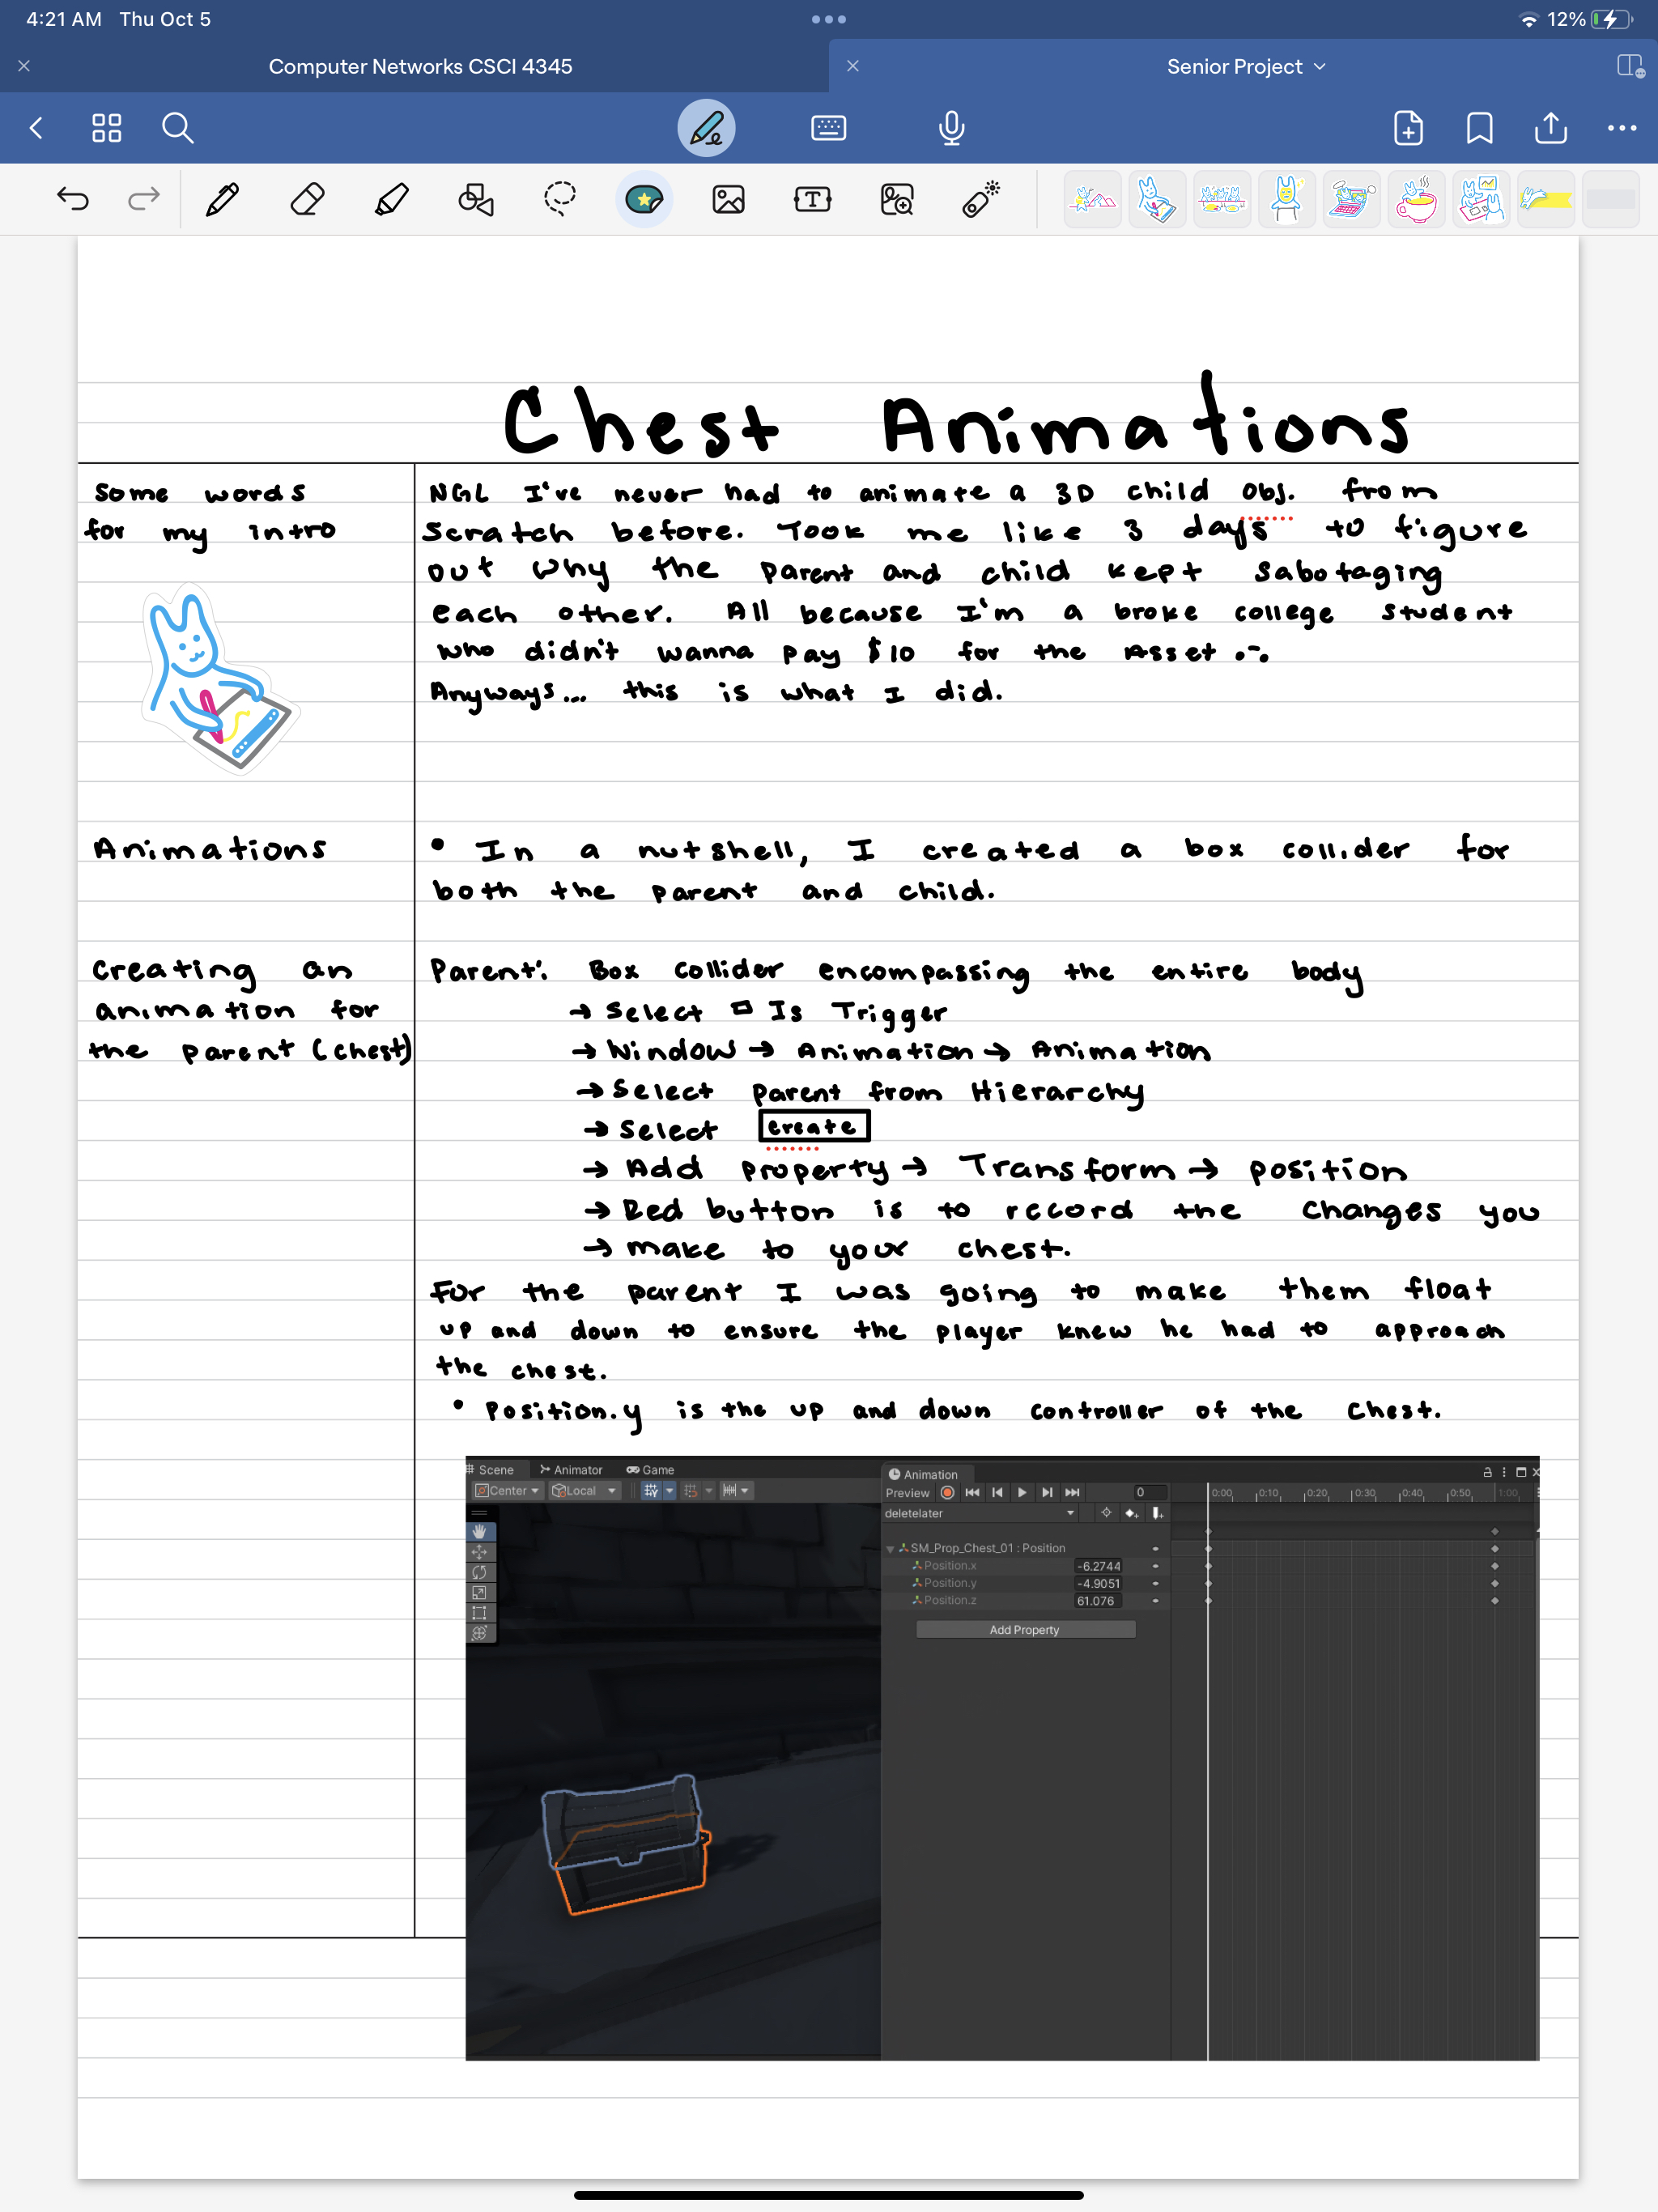 4:21 AM Thu Oct 5
12%
Computer Networks CSCI 4345
Senior Project
Chest Animations
Some words
for my intro
NGL I've never had to animate a 3D child obj. from
scratch before. Took me like 3 days to figure
out why the parent and child kept sabotaging
each other. All because I'm a broke college student
who didn't wanna pay $10 for the asset
Anyways... this is what I did.
Animations
• In a nutshell, I created a box collider for
both the parent and child.
Creating an
animation for
the parent (chest)
Parent: Box collider encompassing the entire body
→ Select □ Is Trigger
→ Window → Animation → Animation
→ Select parent from Hierarchy
→ Select Create
→ Add property → Transform → position
→ Red button is to record the changes you
→ make to your chest.
For the parent I was going to make them float
up and down to ensure the player knew he had to approach
the chest.
• Position.y is the up and down controller of the chest.
Scene Animator Game
Center Local
Animation
Preview 0
0:00 0:10 0:20 0:30 0:40 0:50 1:00
deletelater
SM_Prop_Chest_01 : Position
Position.x -6.2744
Position.y -4.9051
Position.z 61.076
Add Property